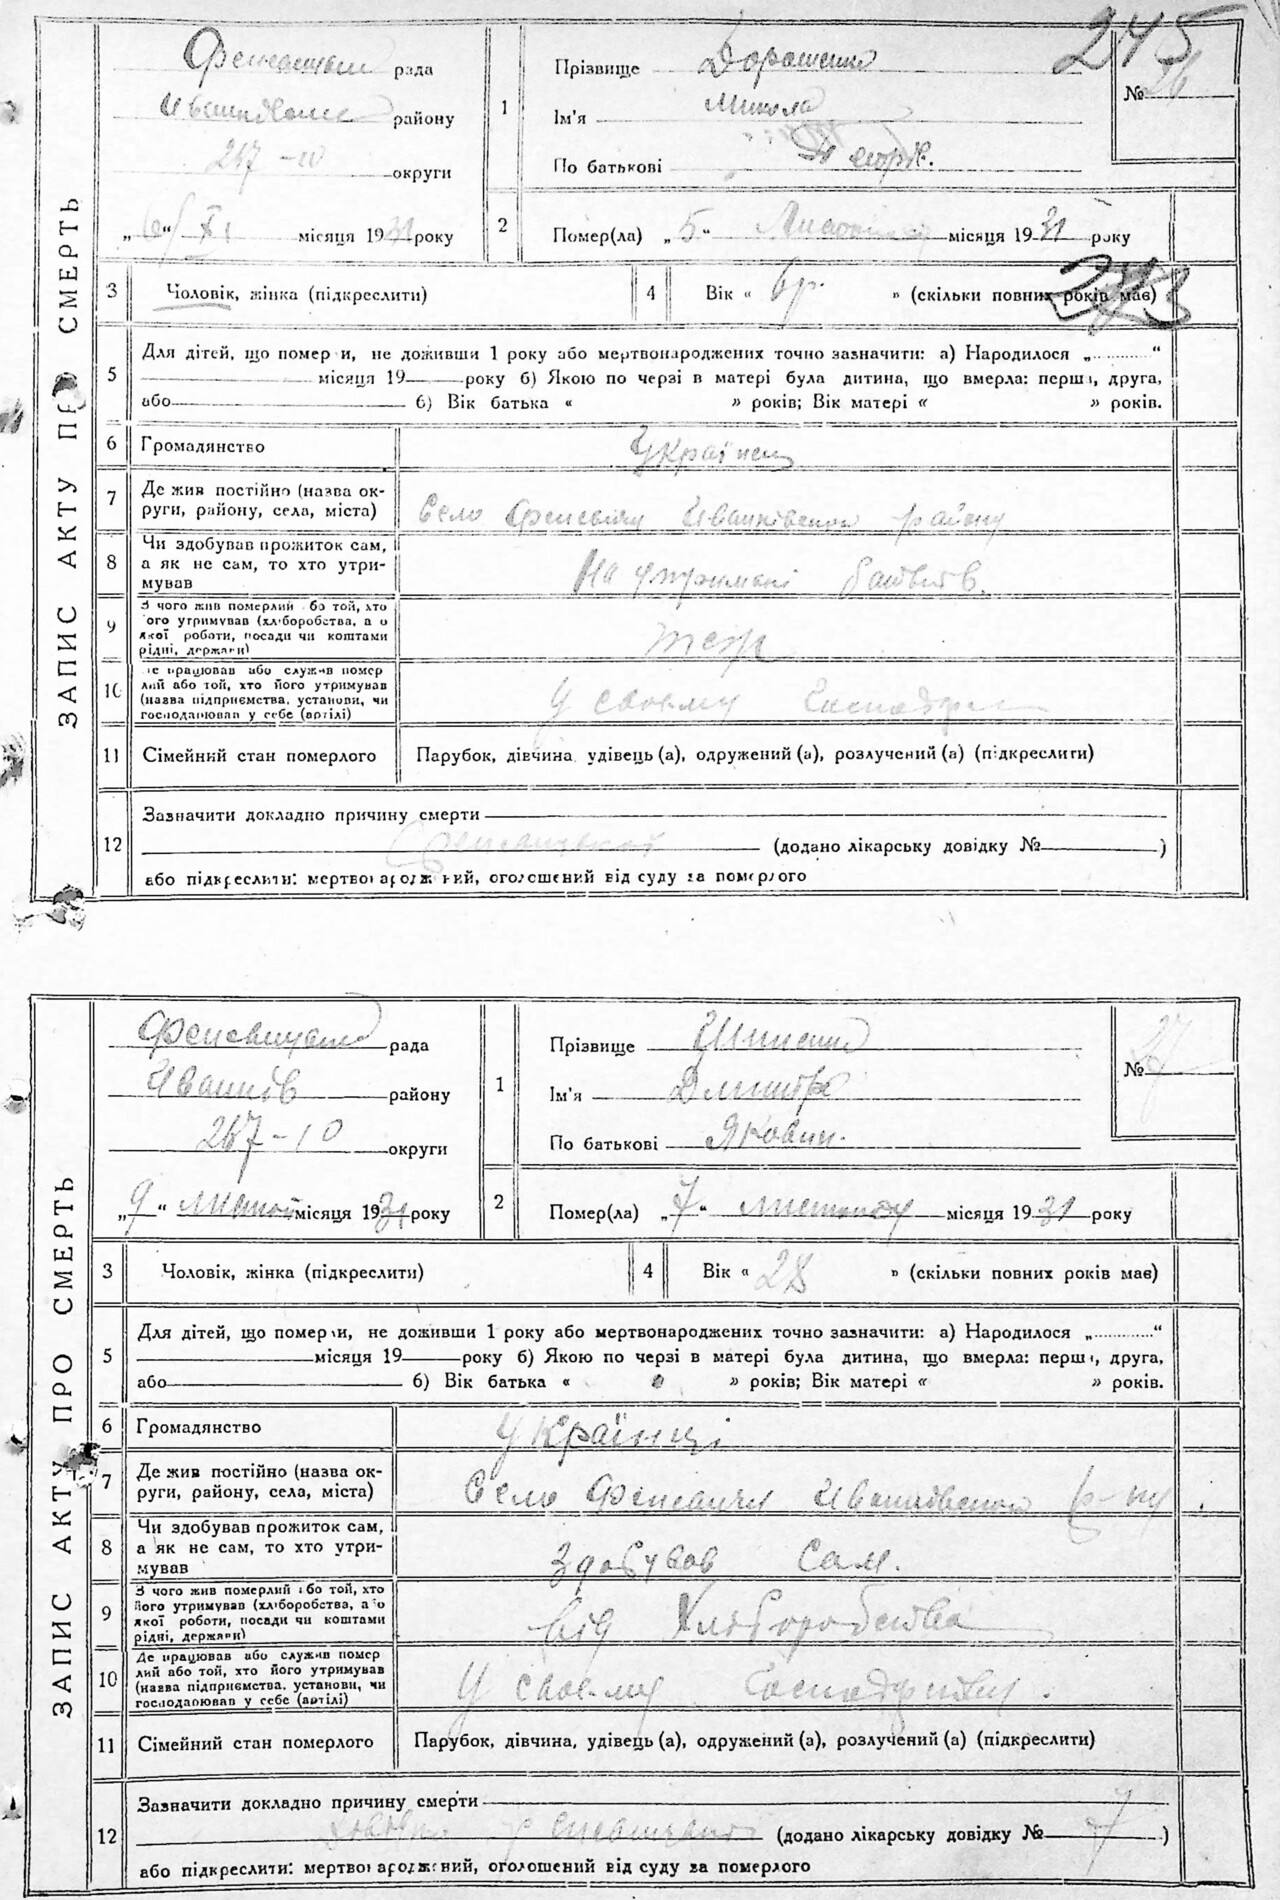 ЗАПИС АКТУ ПРО СМЕРТЬ
245
рада
району
247-10 округи
„6“ XI місяця 1931 року
1
Прізвище Дорошенко
Ім'я Микола
По батькові
№ 26
2
Помер(ла) „5“ Листопада місяця 1931 року
3
Чоловік, жінка (підкреслити)
4
Вік « 6 р. » (скільки повних років має)
243
5
Для дітей, що померли, не доживши 1 року або мертвонароджених точно зазначити: а) Народилося „ “
місяця 19 року б) Якою по черзі в матері була дитина, що вмерла: перша, друга,
або 6) Вік батька « » років; Вік матері « » років.
6
Громадянство
Українец
7
Де жив постійно (назва ок-
руги, району, села, міста)
Село Феневичи Иванківского району
8
Чи здобував прожиток сам,
а як не сам, то хто утри-
мував
На утримані батьків.
9
З чого жив померлий або той, хто
його утримував (хліборобства, або
якої роботи, посади чи коштами
рідні, держави)
10
Де працював або служив помер
лий або той, хто його утримував
(назва підприємства, установи, чи
господарював у себе (артілі)
У своєму
11
Сімейний стан померлого
Парубок, дівчина, удівець (а), одружений (а), розлучений (а) (підкреслити)
12
Зазначити докладно причину смерти
(додано лікарську довідку № )
або підкреслити: мертвонароджений, оголошений від суду за померлого
ЗАПИС АКТУ ПРО СМЕРТЬ
рада
Иванків району
247-10 округи
„9“ листоп місяця 1931 року
1
Прізвище
Ім'я Дмитро
По батькові Якович.
№ 27
2
Помер(ла) „7“ листопаду місяця 1931 року
3
Чоловік, жінка (підкреслити)
4
Вік « 28 » (скільки повних років має)
5
Для дітей, що померли, не доживши 1 року або мертвонароджених точно зазначити: а) Народилося „ “
місяця 19 року б) Якою по черзі в матері була дитина, що вмерла: перша, друга,
або 6) Вік батька « » років; Вік матері « » років.
6
Громадянство
Українці
7
Де жив постійно (назва ок-
руги, району, села, міста)
Село Феневичи Иванківского р-ну
8
Чи здобував прожиток сам,
а як не сам, то хто утри-
мував
Здобував сам.
9
З чого жив померлий або той, хто
його утримував (хліборобства, або
якої роботи, посади чи коштами
рідні, держави)
від Хліборобства
10
Де працював або служив помер
лий або той, хто його утримував
(назва підприємства, установи, чи
господарював у себе (артілі)
У своєму Господарстві.
11
Сімейний стан померлого
Парубок, дівчина, удівець (а), одружений (а), розлучений (а) (підкреслити)
12
Зазначити докладно причину смерти
(додано лікарську довідку № 7 )
або підкреслити: мертвонароджений, оголошений від суду за померлого